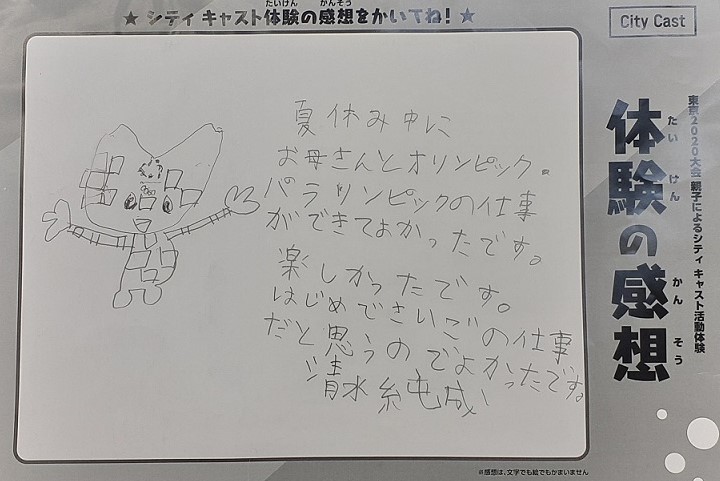 ★ シティ キャスト体験の感想をかいてね！ ★
たいけん かんそう
City Cast
東京2020大会 親子によるシティ キャスト活動体験
体験の感想
たい けん かん そう
夏休み中に
お母さんとオリンピック・
パラリンピックの仕事
ができてよかったです。
楽しかったです。
はじめでさいごの仕事
だと思うのでよかったです。
清水 純成
※感想は、文字でも絵でもかまいません